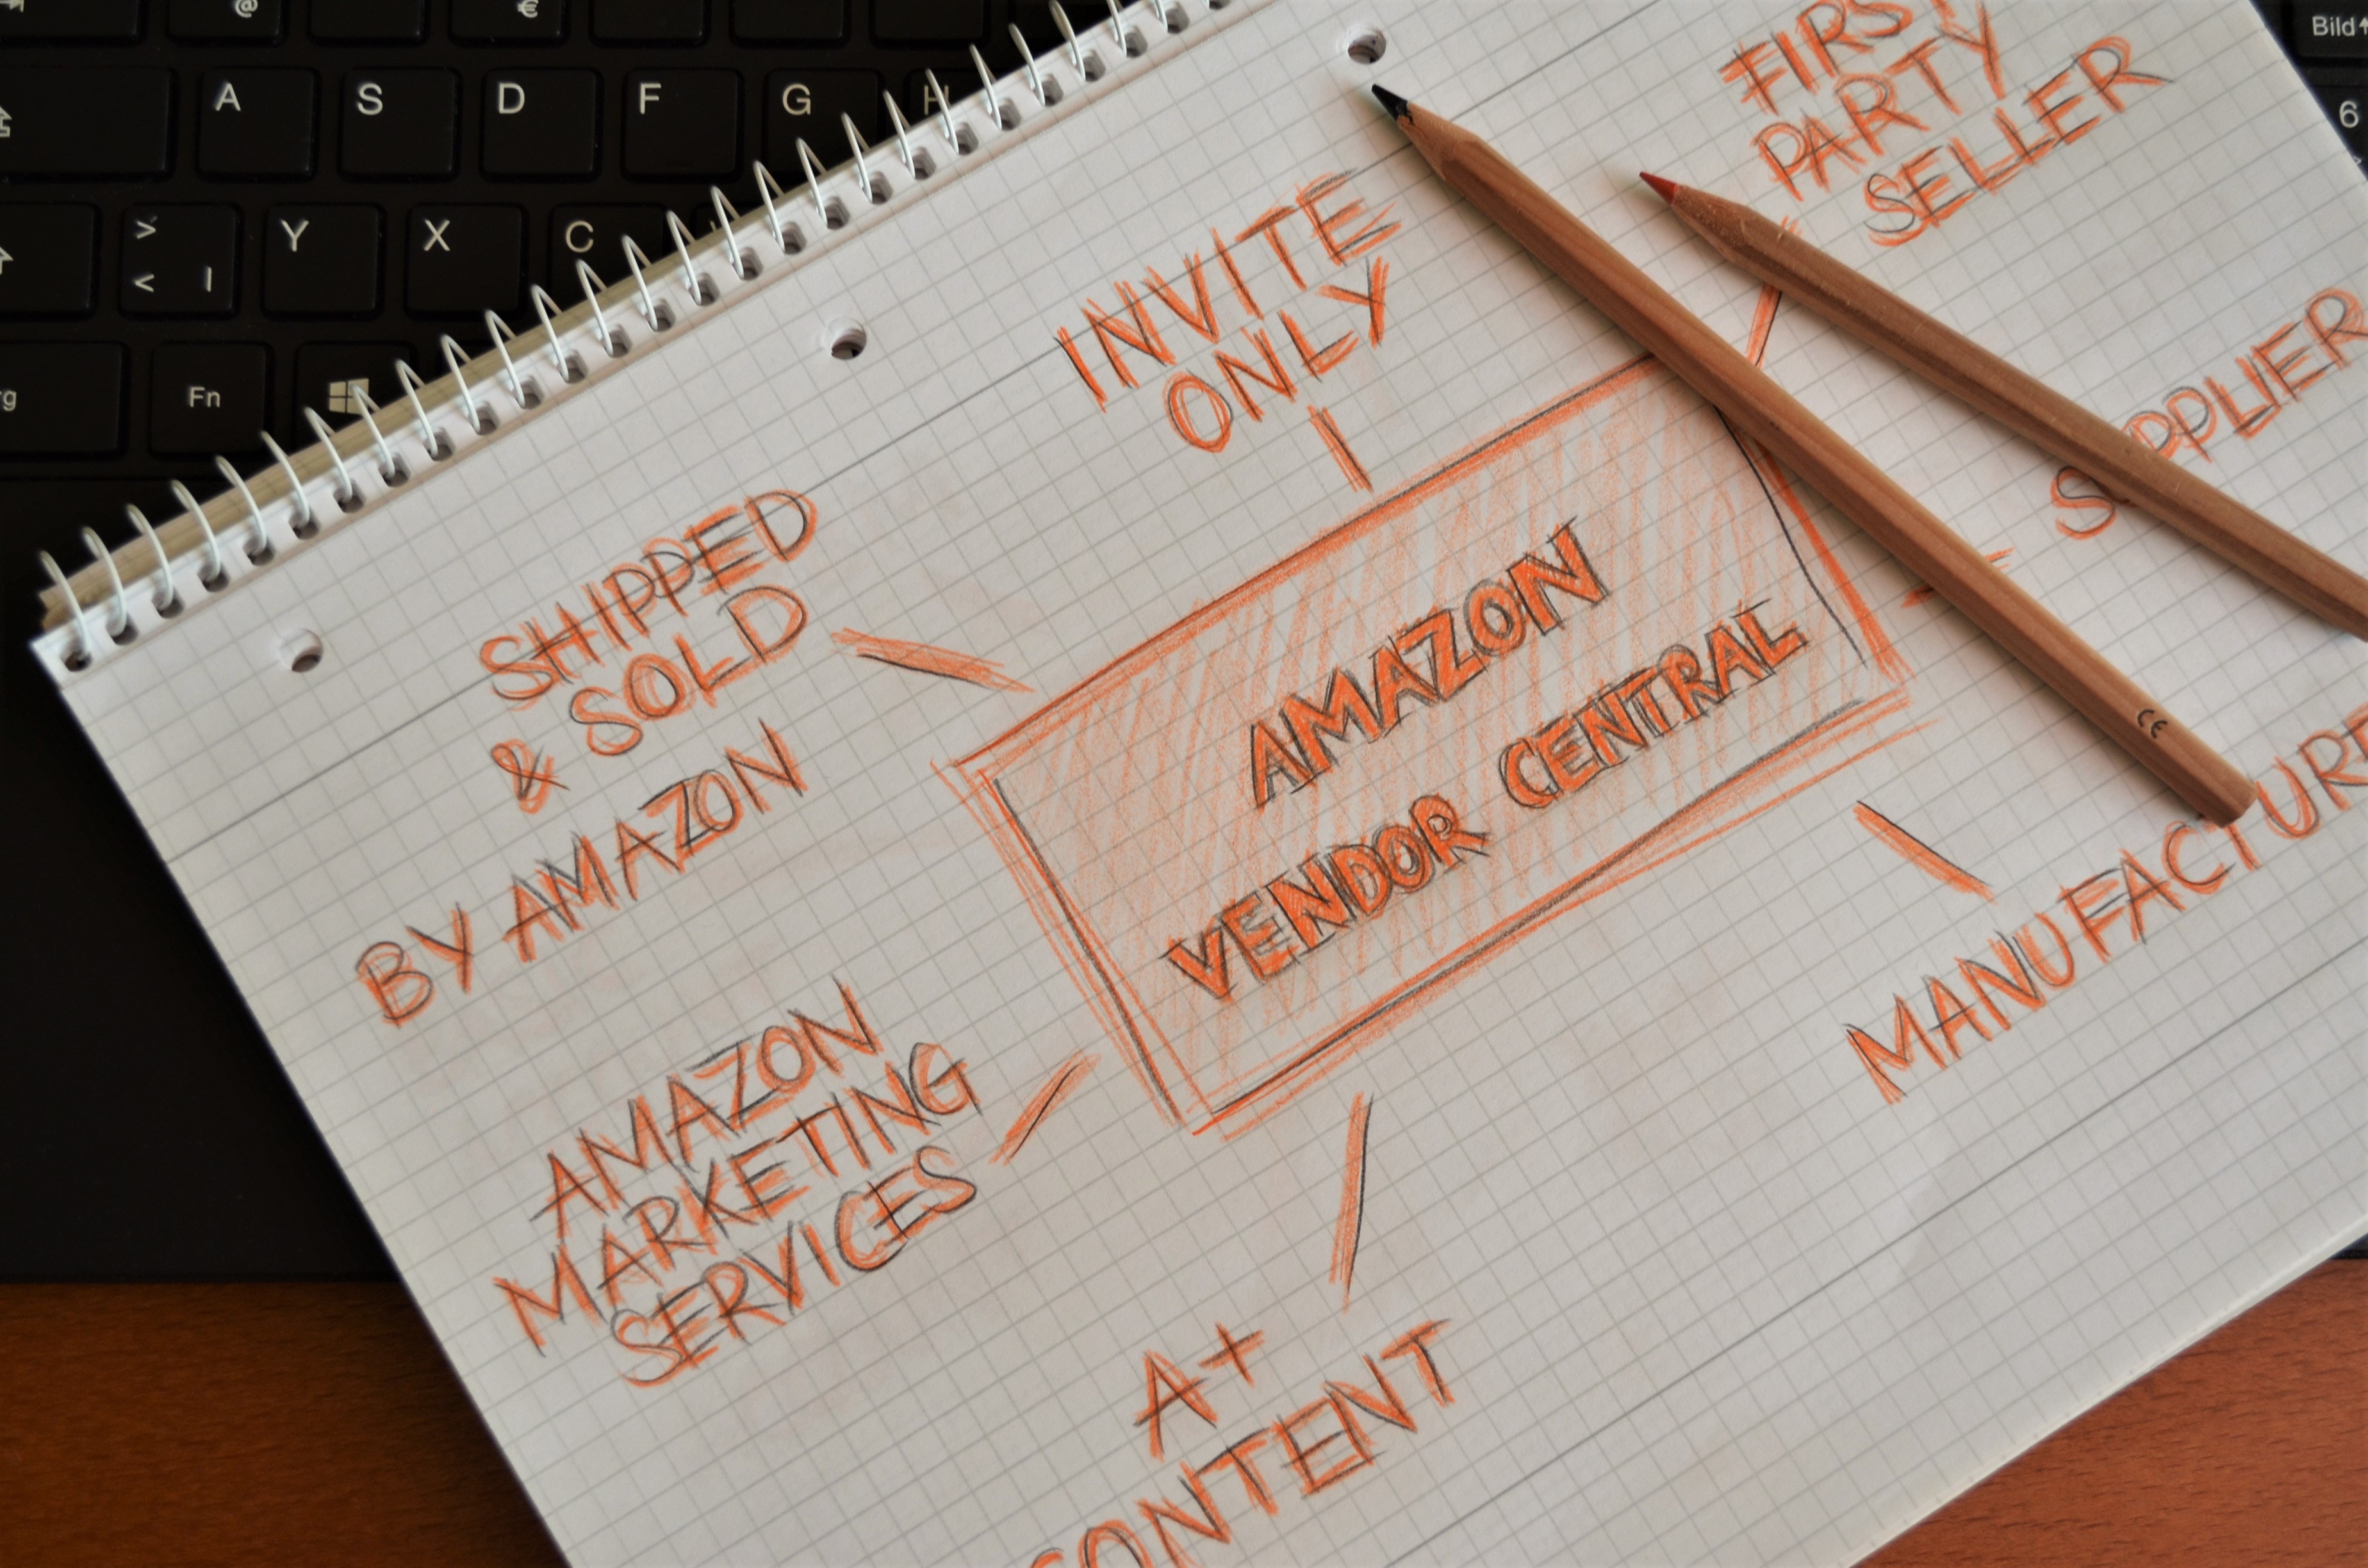 @
€
A S D F G H
>
< |
Y X C
Fn
Bild
6
FIRST
PARTY
SELLER
INVITE
ONLY
SUPPLIER
SHIPPED
& SOLD
BY AMAZON
AMAZON
VENDOR CENTRAL
MANUFACTURE
AMAZON
MARKETING
SERVICES
A+
CONTENT
CE